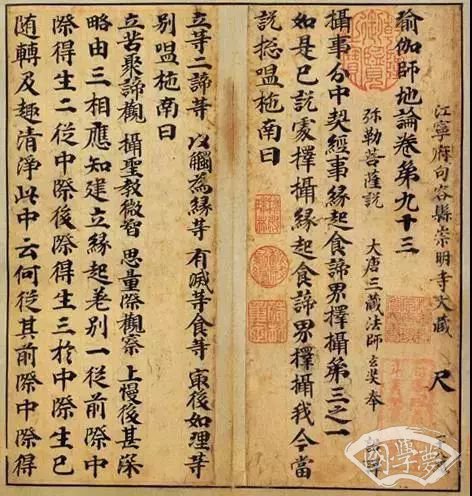 江寧府句容縣崇明寺大藏 尺
瑜伽師地論卷第九十三
弥勒菩薩說 大唐三藏法師玄奘奉
攝事分中契經事緣起食諦界擇攝第三之一
如是已說處擇攝緣起食諦界擇攝我今當
說揔嗢柂南曰
立等二諦等 以觸為緣等 有滅等食等 最後如理等
別嗢柂南曰
立苦聚諦觀 攝聖教微智 思量際觀察 上慢後甚深
略由三相應知建立緣起差別一從前際中
際得生二從中際後際得生三於中際生已
随轉及趣清淨此中云何從其前際中際得
國學夢